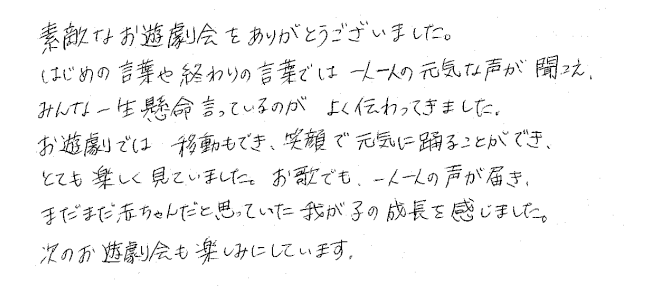 素敵なお遊劇会をありがとうございました。
はじめの言葉や終わりの言葉では一人一人の元気な声が聞こえ、
みんな一生懸命言っているのが よく伝わってきました。
お遊劇では 移動もでき、笑顔で元気に踊ることができ、
とても楽しく見ていました。お歌でも、一人一人の声が届き、
まだまだ赤ちゃんだと思っていた我が子の成長を感じました。
次のお遊劇会も楽しみにしています。